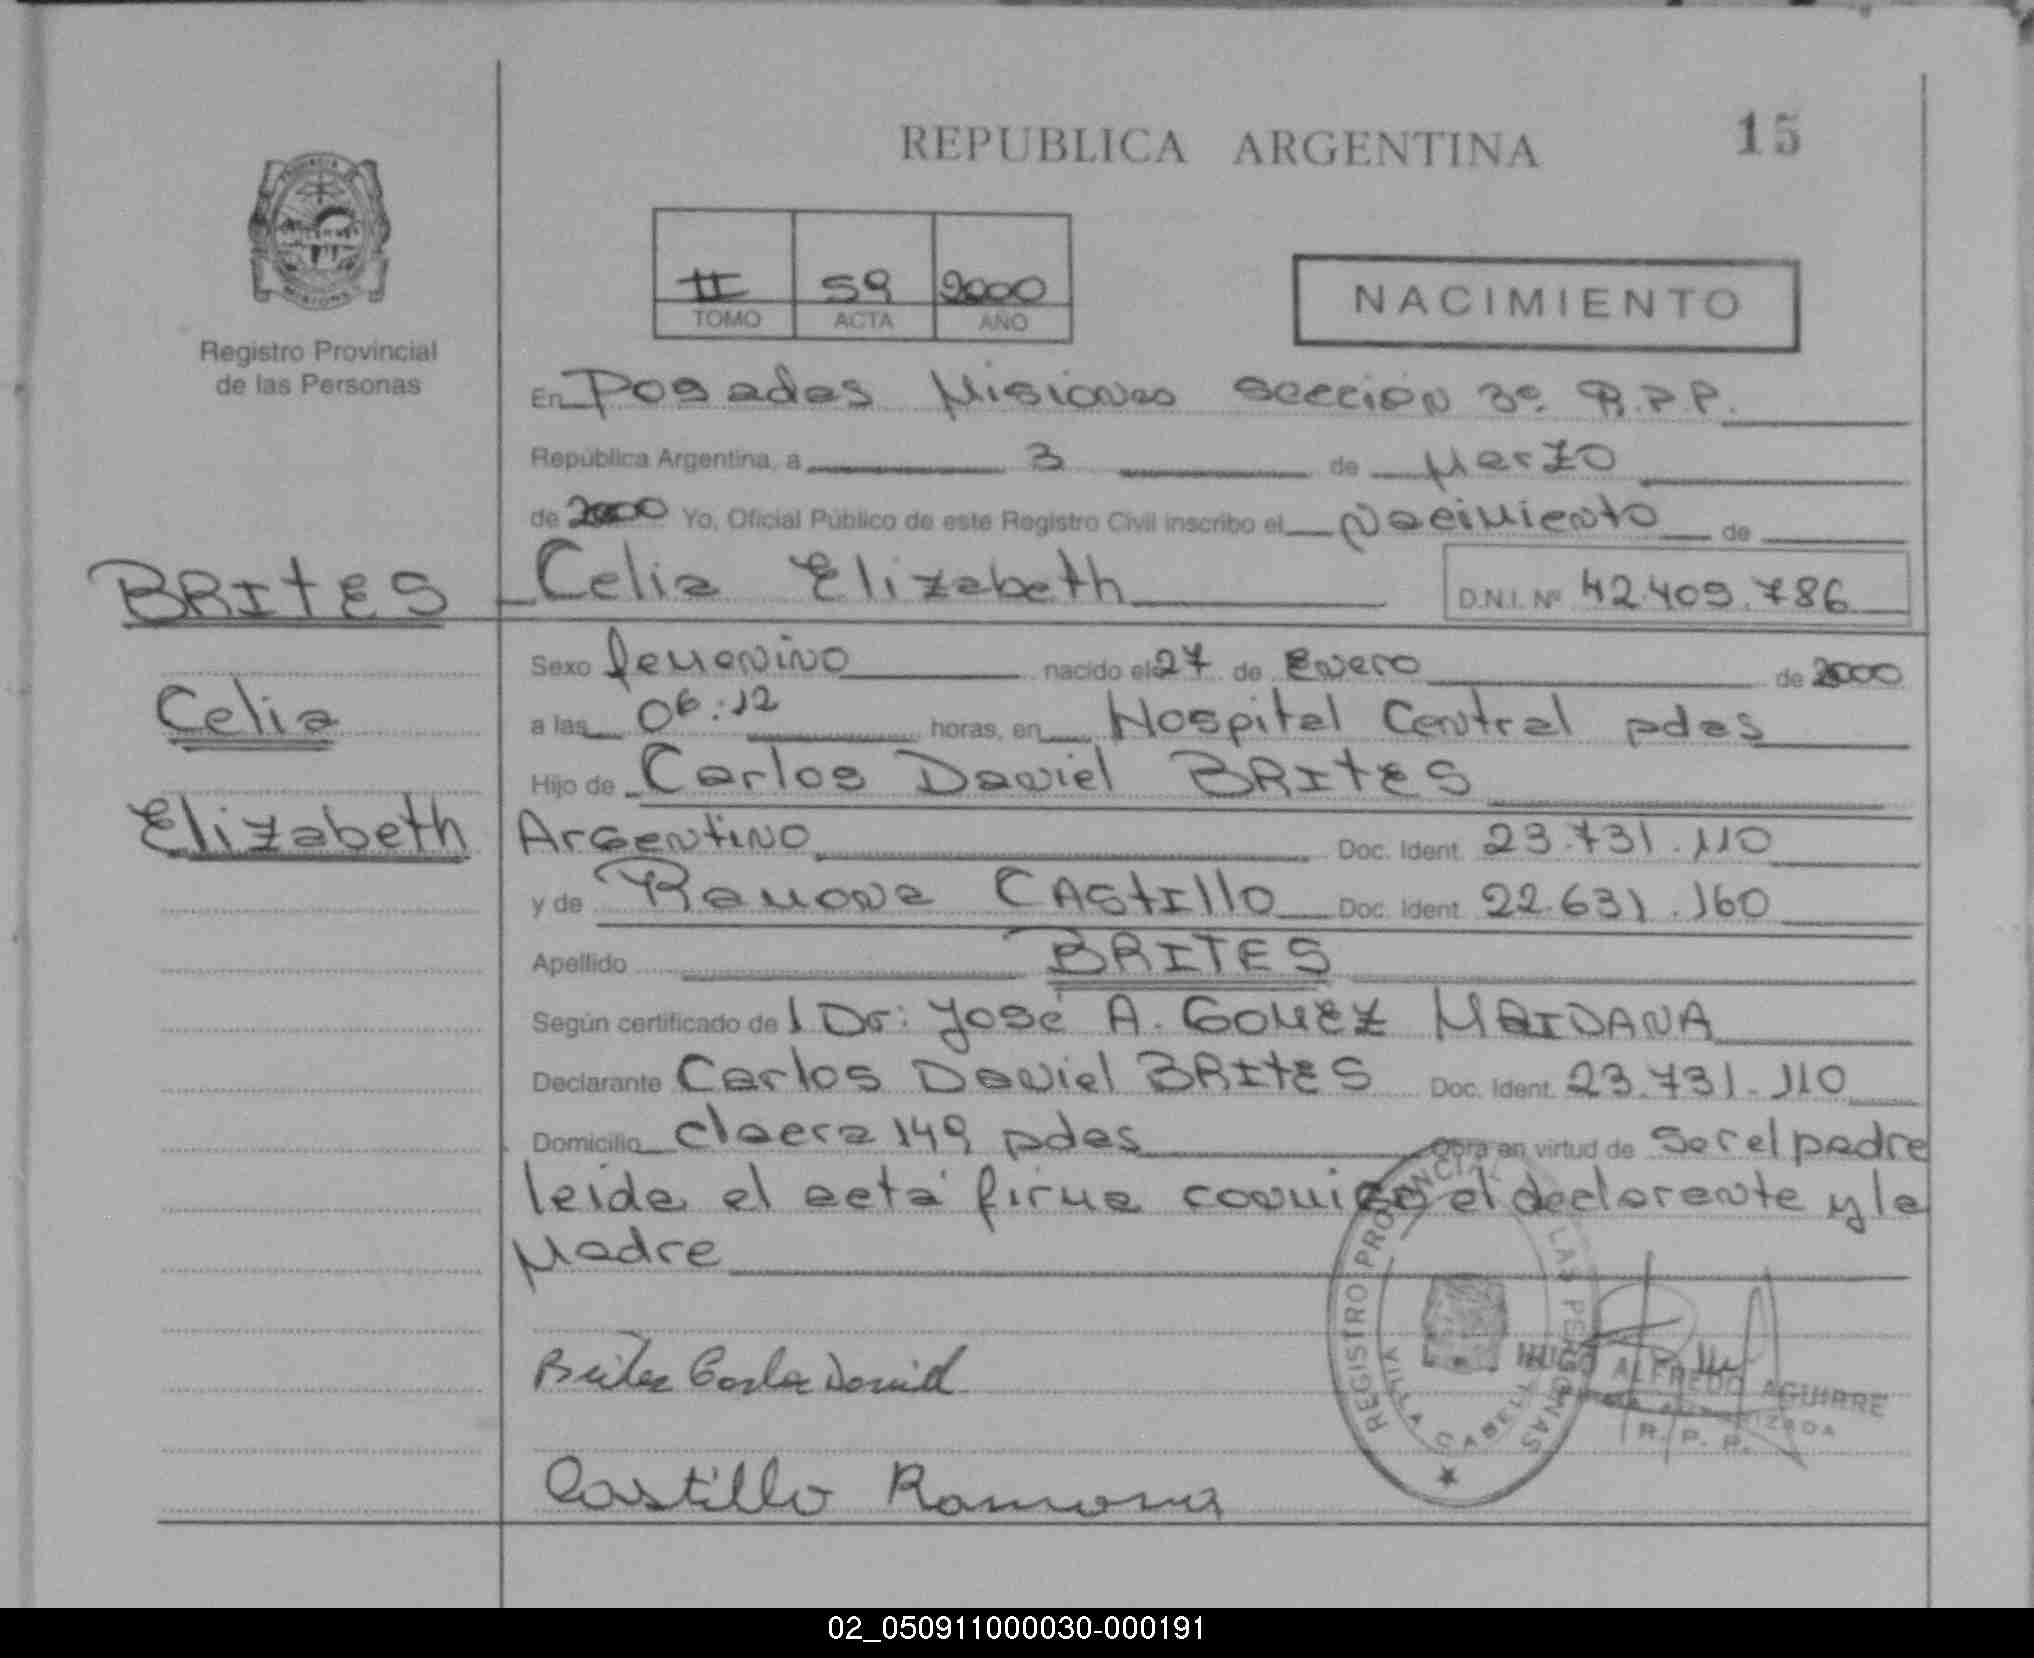 REPUBLICA ARGENTINA
15
Registro Provincial
de las Personas
II 59 2000
TOMO ACTA AÑO
NACIMIENTO
En Posadas Misiones sección 3º R.P.P.
República Argentina, a 3 de Marzo
de 2000 Yo, Oficial Público de este Registro Civil inscribo el Nacimiento de
BRITES
Celia
Elizabeth
Celia Elizabeth D.N.I. Nº 42.409.786
Sexo femenino nacido el 27 de Enero de 2000
a las 06:12 horas, en Hospital Central pdas
Hijo de Carlos Daniel BRITES
Argentino Doc. Ident. 23.731.110
y de Ramona CASTILLO Doc. Ident. 22.631.160
Apellido BRITES
Según certificado de l Dr: José A. GOMEZ MAIDANA
Declarante Carlos Daniel BRITES Doc. Ident. 23.731.110
Domicilio 149 pdas Obra en virtud de ser el padre
leida el acta firma conmigo el declarante y la
Madre
Brites Carlos Daniel
Castillo Ramona
REGISTRO PROVINCIAL LAS PERSONAS
HUGO ALFREDO AGUIRRE
R. P. P.
02_050911000030-000191